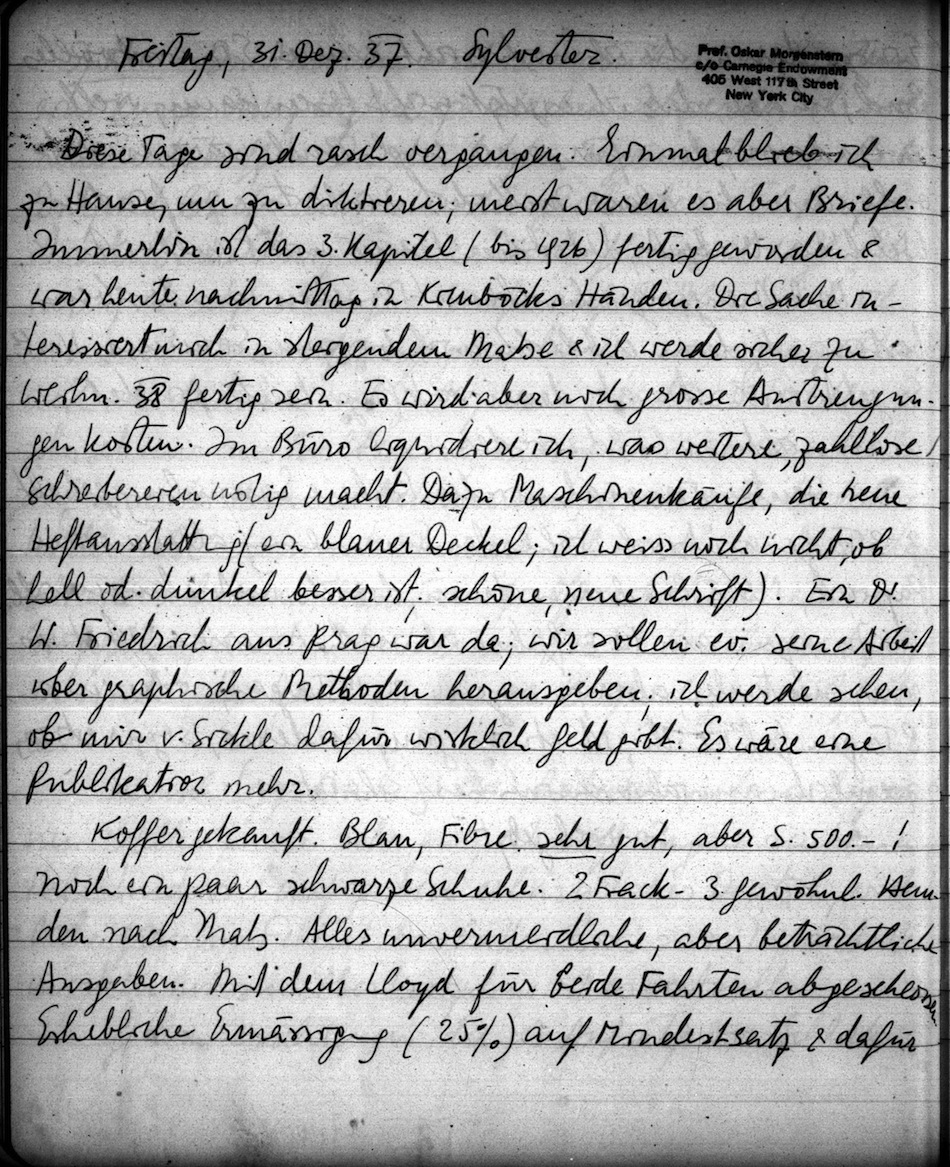 Freitag, 31. Dez. 37. Sylvester.
Prof. Oskar Morgenstern
c/o Carnegie Endowment
405 West 117th Street
New York City
Diese Tage sind rasch vergangen. Einmal blieb ich
zu Hause, um zu diktieren; meist waren es aber Briefe.
Immerhin ist das 3. Kapitel (bis 1926) fertig geworden &
war heute nachmittag in Händen. Die Sache in-
teressiert mich in steigendem Maße & ich werde sicher zu
Weihn. 38 fertig sein. Es wird aber noch grosse Anstrengun-
gen kosten. Im Büro liquidiere ich, was weitere, zahllose
Schreibereien nötig macht. Dazu Maschinenkäufe, die neue
Heftausstattung (ein blauer Deckel; ich weiss noch nicht, ob
hell od. dunkel besser ist; schöne, neue Schrift). Ein Dr.
W. Friedrich aus Prag war da; wir sollen ev. seine Arbeit
über graphische Methoden herausgeben; ich werde sehen,
ob mir v. Sickle dafür wirklich Geld gibt. Es wäre eine
Publikation mehr.
Koffer gekauft. Blau, Fibre. sehr gut, aber S. 500.- !
Noch ein paar schwarze Schuhe. 2 Frack- 3 gewöhnl. Hem-
den nach Maß. Alles unvermeidliche, aber beträchtliche
Ausgaben. Mit dem Lloyd für beide Fahrten abgeschlossen
Erhebliche Ermässigung (25%) auf Mindestsatz & dafür